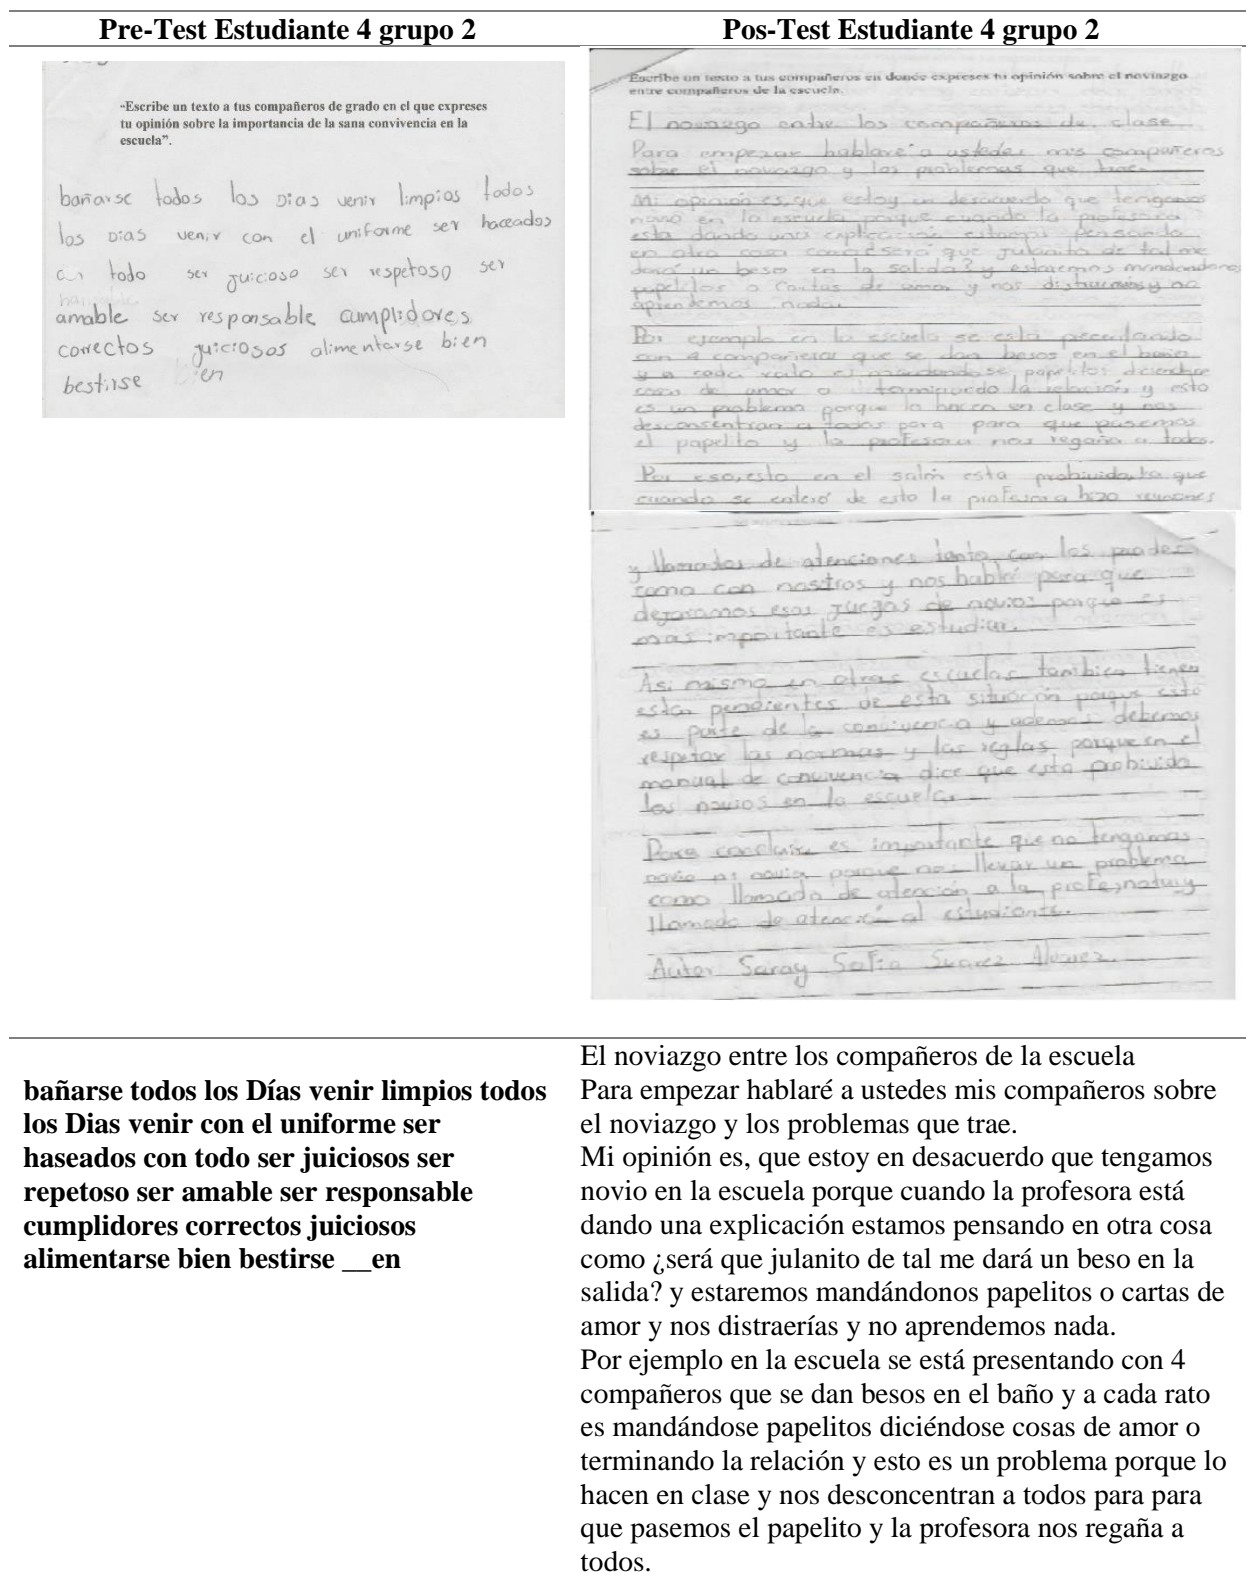 Pre-Test Estudiante 4 grupo 2
Pos-Test Estudiante 4 grupo 2
“Escribe un texto a tus compañeros de grado en el que expreses
tu opinión sobre la importancia de la sana convivencia en la
escuela”.
bañarse todos los Dias venir limpios todos
los Dias venir con el uniforme ser haceados
con todo ser juicioso ser respetoso ser
amable ser responsable cumplidores
correctos juiciosos alimentarse bien
bestirse en
Escribe un texto a tus compañeros en donde expreses tu opinión sobre el noviazgo
entre compañeros de la escuela.
El noviazgo entre los compañeros de clase
Para empezar hablaré a ustedes mis compañeros
sobre el noviazgo y los problemas que trae.
Mi opinión es, que estoy en desacuerdo que tengamos
novio en la escuela porque cuando la profesora
esta dando una explicación estamos pensando
en otra cosa como ¿será que julanito de tal me
dará un beso en la salida? y estaremos mandandonos
papelitos o cartas de amor y nos y no
aprendemos nada.
Por ejemplo en la escuela se está
con 4 compañeros que se dan besos en el baño
y a cada rato es mandandose papelitos diciendose
cosas de amor o la relación y esto
es un problema porque lo hacen en clase y nos
desconsentran a todos para para que pasemos
el papelito y la profesora nos regaña a todos.
Por eso, esto en el salón esta prohivido, ya que
cuando se enteró de esto la profesora hizo reuniones
y llamados de atenciones tanto con los padres
como con nostros y nos habló para que
dejaramos esos juegos de novios porque es
mas importante es estudiar.
Asi mismo en otras escuelas tambien tienen
estar pendientes de esta situación porque esto
es parte de la convivencia y ademas debemos
respetar las normas y las reglas porque en el
manual de convivencia dice que esta prohivido
los novios en la escuela.
Para concluir es importante que no tengamos
novio ni novia porque nos llevar un problema
como llamado de atención a la profe, y
llamado de atención al estudiante.
Autor Saray Sofia Suarez Alvarez
bañarse todos los Días venir limpios todos
los Dias venir con el uniforme ser
haseados con todo ser juiciosos ser
repetoso ser amable ser responsable
cumplidores correctos juiciosos
alimentarse bien bestirse __en
El noviazgo entre los compañeros de la escuela
Para empezar hablaré a ustedes mis compañeros sobre
el noviazgo y los problemas que trae.
Mi opinión es, que estoy en desacuerdo que tengamos
novio en la escuela porque cuando la profesora está
dando una explicación estamos pensando en otra cosa
como ¿será que julanito de tal me dará un beso en la
salida? y estaremos mandándonos papelitos o cartas de
amor y nos distraerías y no aprendemos nada.
Por ejemplo en la escuela se está presentando con 4
compañeros que se dan besos en el baño y a cada rato
es mandándose papelitos diciéndose cosas de amor o
terminando la relación y esto es un problema porque lo
hacen en clase y nos desconcentran a todos para para
que pasemos el papelito y la profesora nos regaña a
todos.